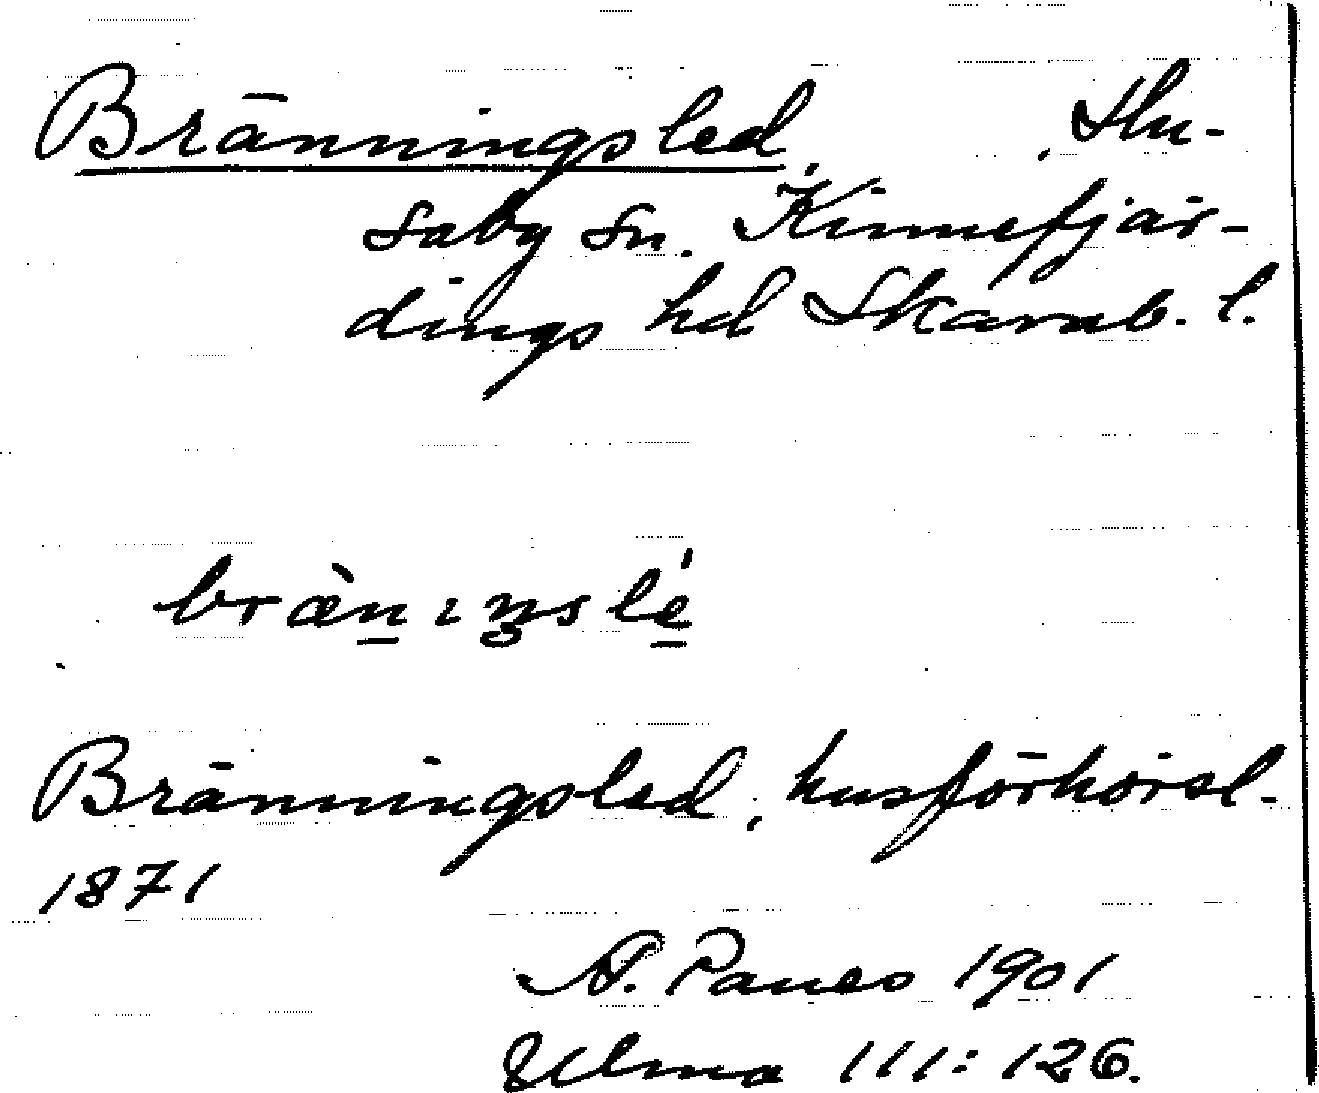 Bränningsled, Hu-
saby sn. Kinnefjär-
dings hd Skarab. l.
brä̀nıŋslé
Bränningsled, husförhörsl.
1871
A. Paues 1901
Ulma 111:126.